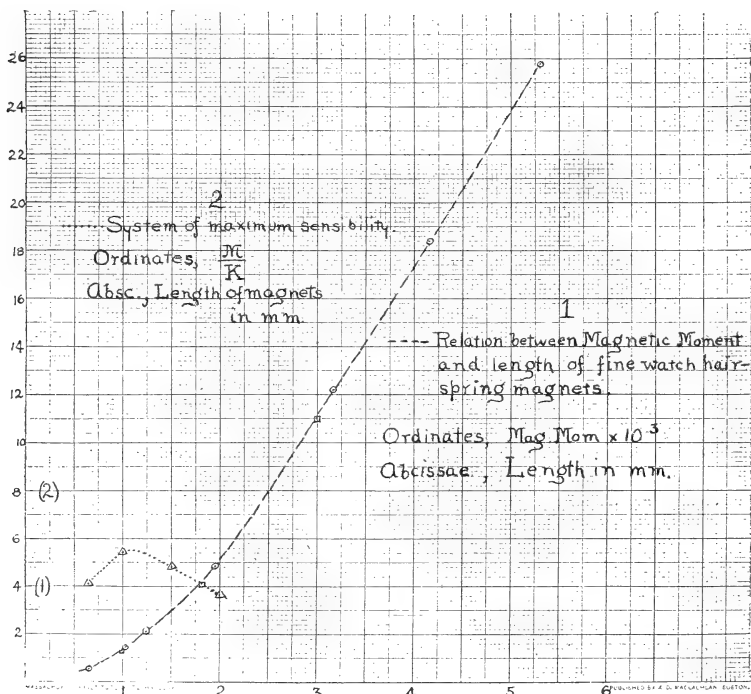 26
24
22
20
18
16
14
12
10
8
6
4
2
(2)
(1)
2
System of maximum sensibility.
Ordinates, M
K
Absc., Length of magnets
in mm.
1
Relation between Magnetic Moment
and length of fine watch hair-
spring magnets.
Ordinates, Mag Mom x 10³
Abcissae, Length in mm.
1 2 3 4 5 6 7
PUBLISHED BY